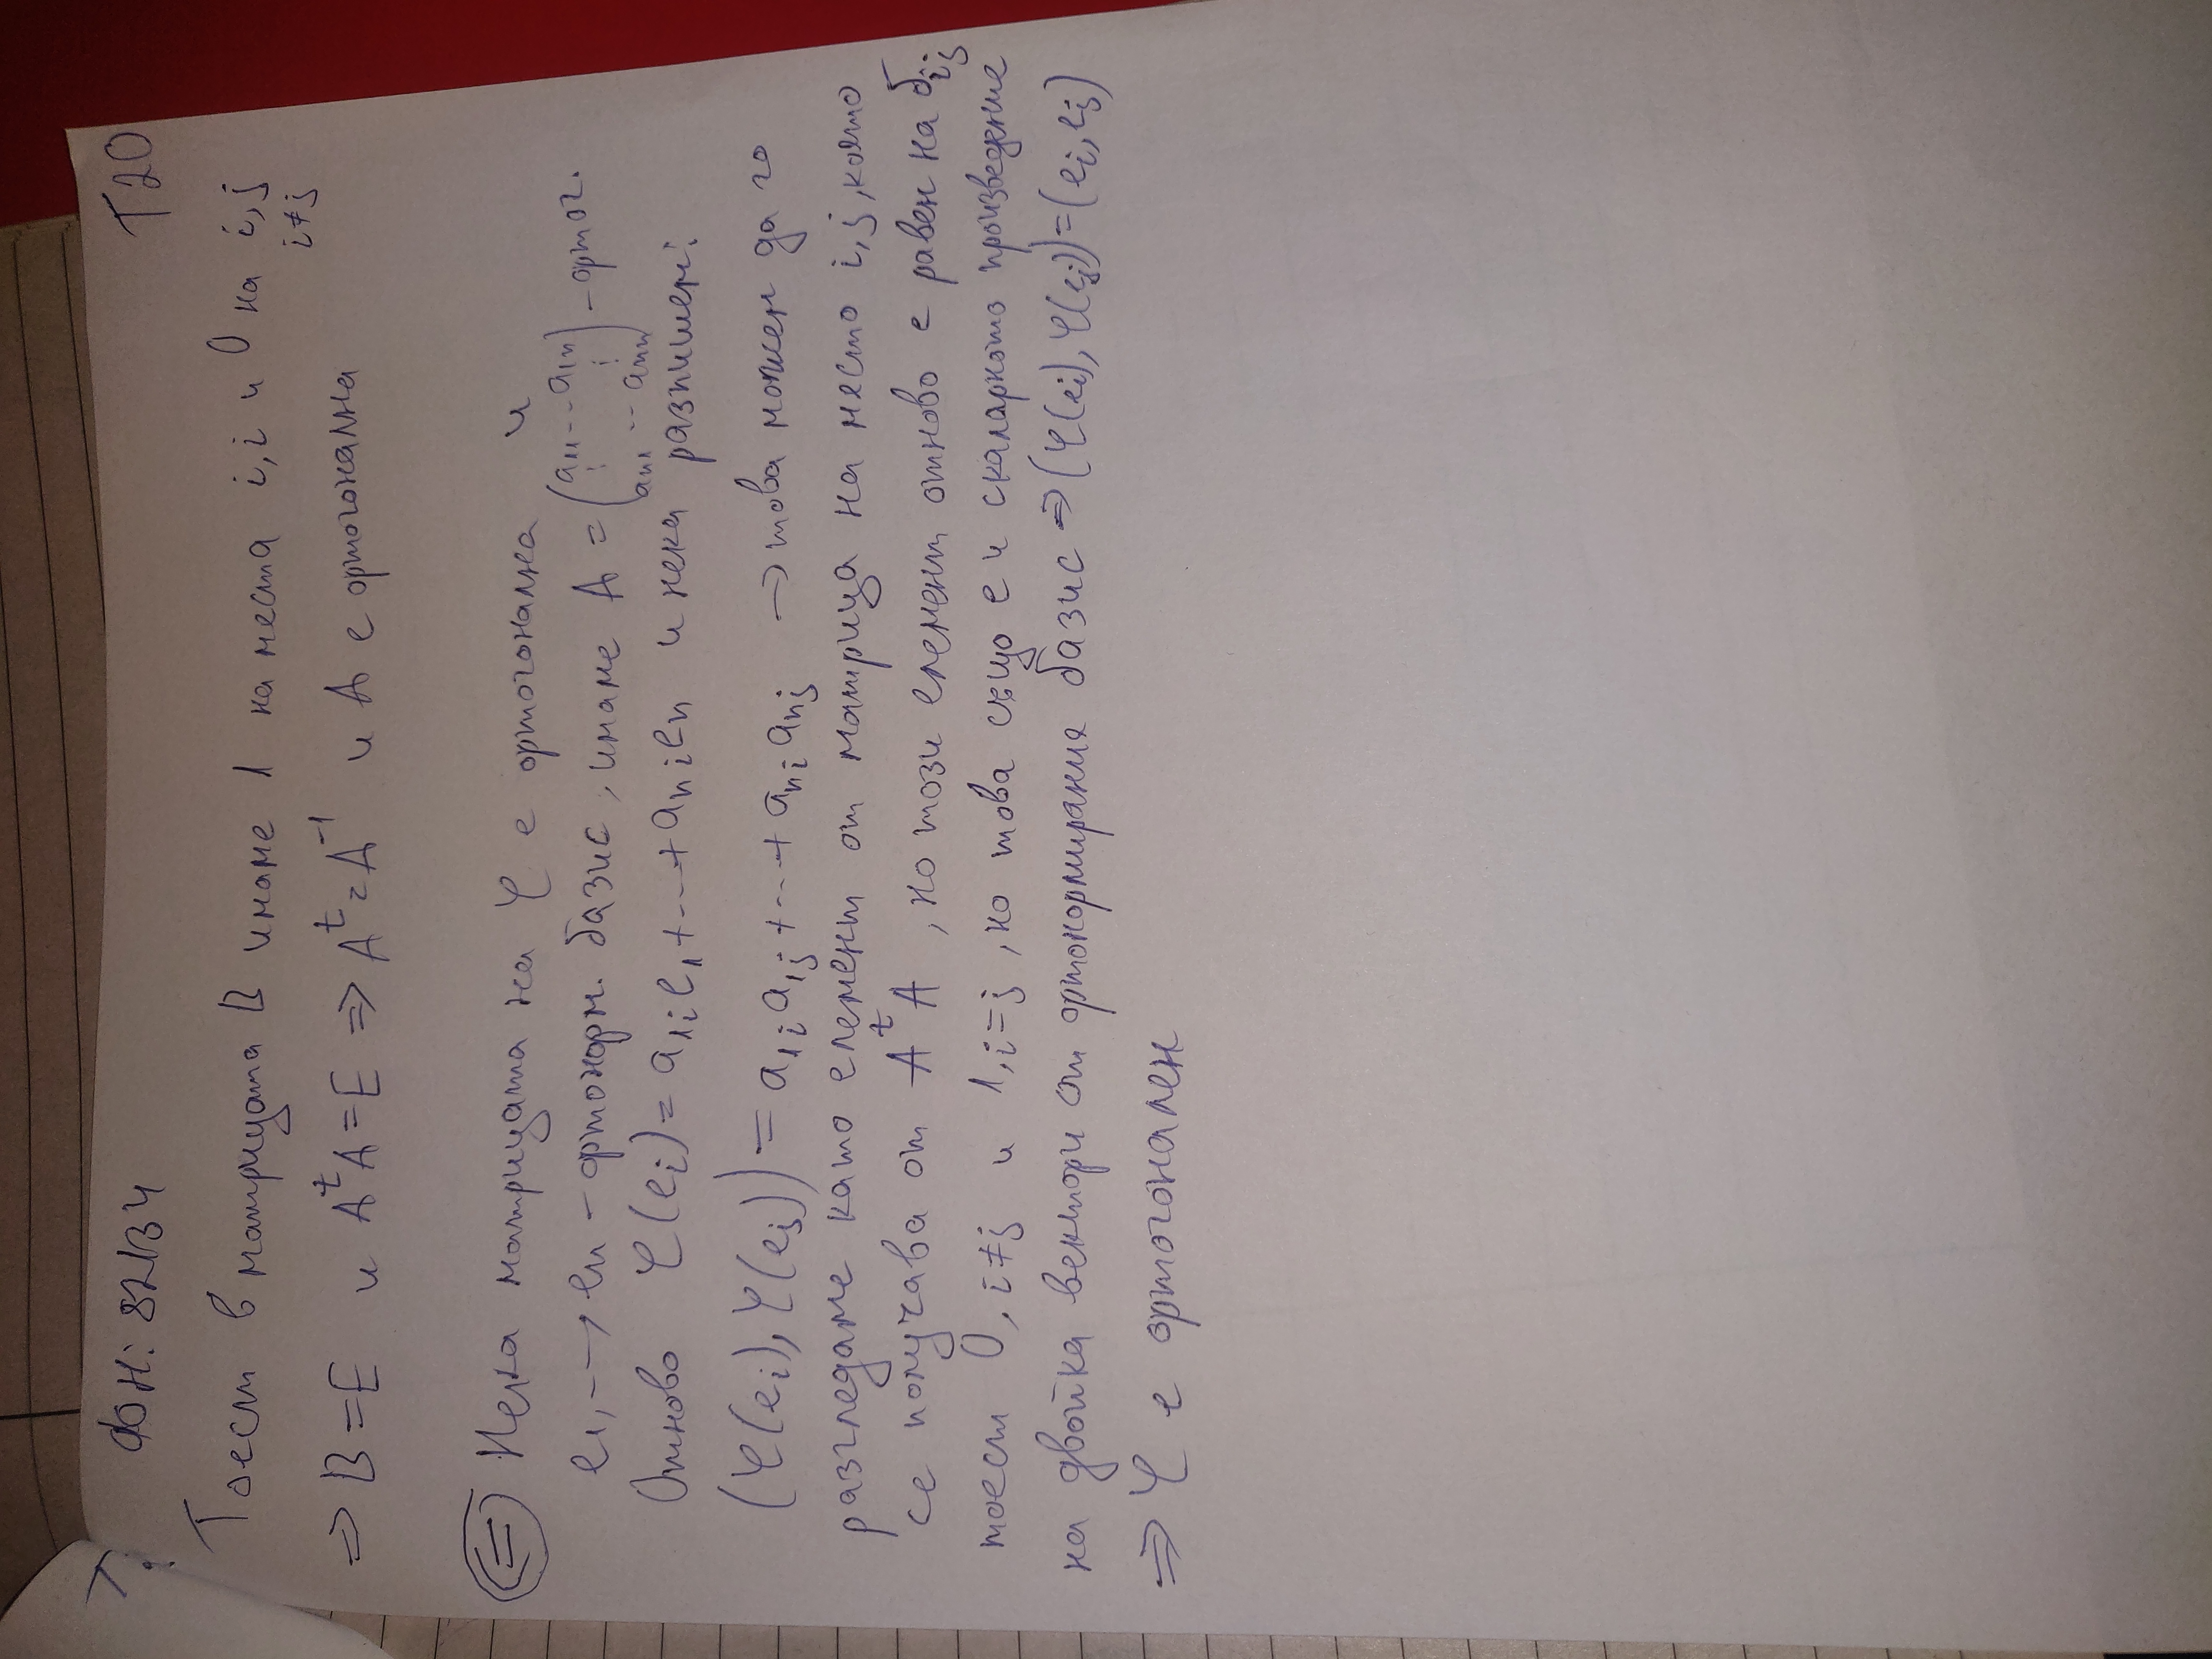 ФН: 82134
T20
Тоест в матрицата B имаме 1 на места i,i и 0 на i,j
i≠j
⇒ B=E и AᵗA=E ⇒ Aᵗ=A⁻¹ и A е ортогонална
⇐ Нека матрицата на φ е ортогонална и
e₁, --→ eₙ - ортонорм. базис, имаме A = (a₁₁...a₁ₙ ⋮ ⋮ aₙ₁...aₙₙ) - ортог.
Отново φ(eᵢ)=a₁ᵢe₁+...+aₙᵢeₙ и нека разпишем:
(φ(eᵢ),φ(eⱼ))=a₁ᵢa₁ⱼ+...+aₙᵢaₙⱼ → това можем да го
разгледаме като елемент от матрица на място i,j, която
се получава от AᵗA, но този елемент отново е равен на δᵢⱼ
тоест 0, i≠j и 1, i=j, но това също е и скаларното произведение
на двойка вектори от ортонормирания базис ⇒ (φ(eᵢ),φ(eⱼ))=(eᵢ,eⱼ)
⇒ φ е ортогонален